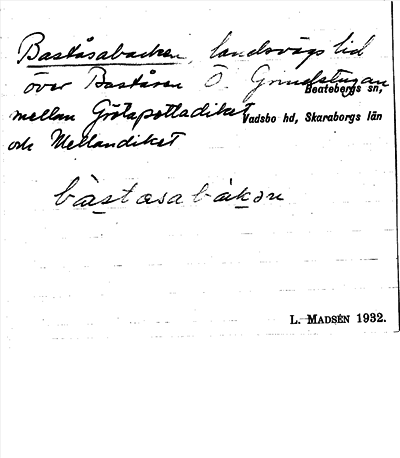 Baståsabacken, landsvägslid
över Baståsen Ö. Grindstugan
Beatebergs sn,
mellan Grötapottadiket
Vadsbo hd, Skaraborgs län
och Mellandiket
bàstasabàkən
L. MADSÉN 1932.